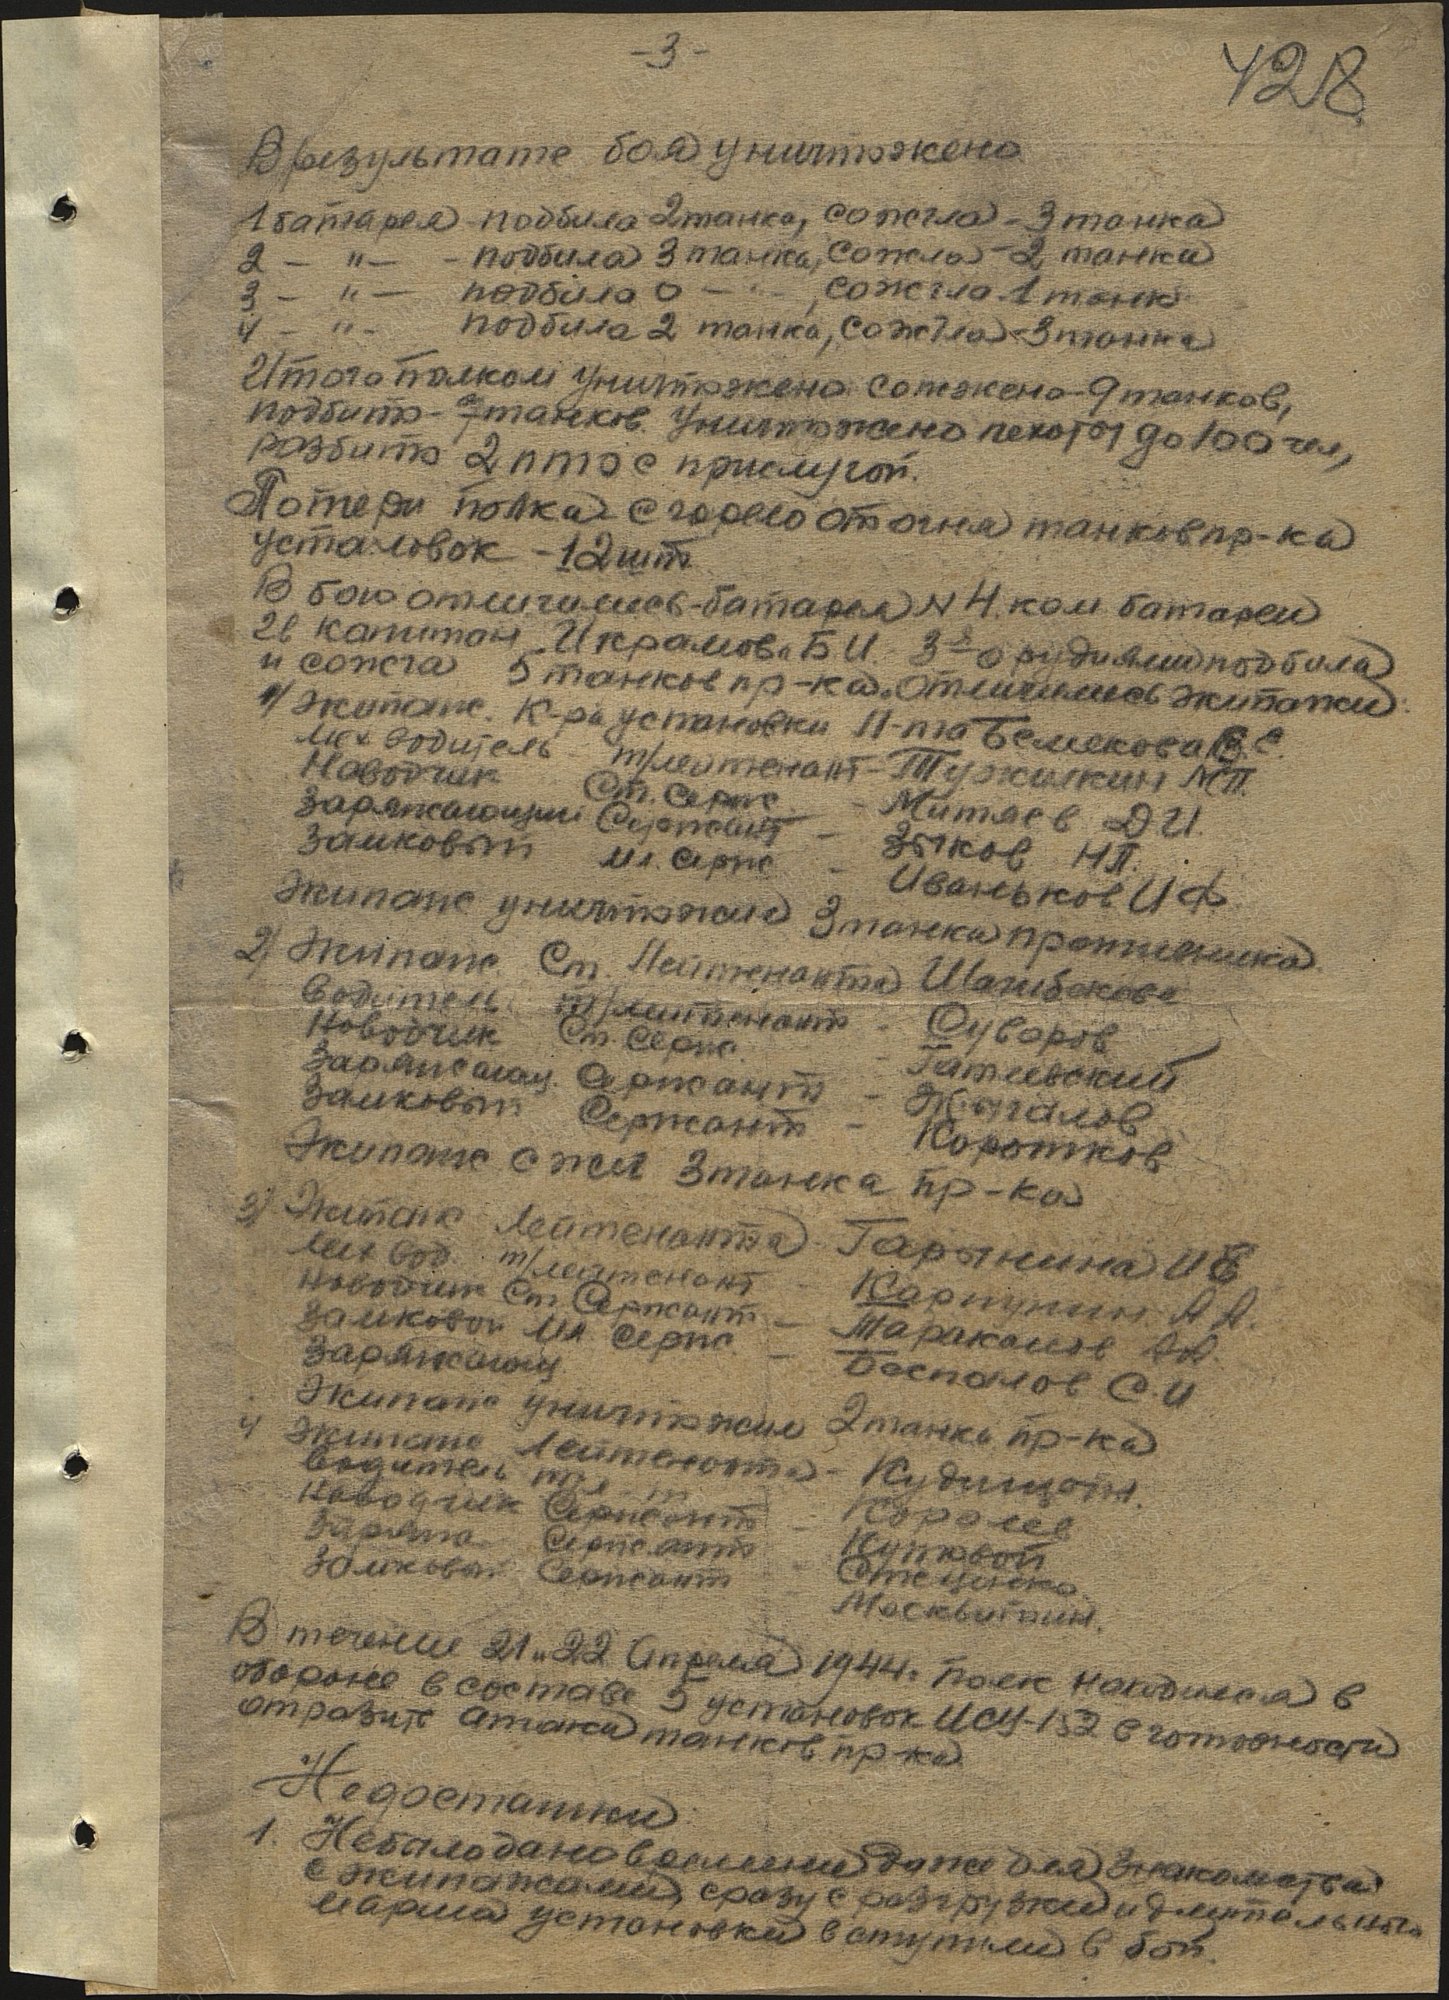 -3-
428
В результате боя уничтожено
1 батарея подбила 2 танка, сожгла - 3 танка
2 - " - - подбила 3 танка, сожгла - 2 танка
3 - " - подбила 0 - " - , сожгла 1 танк
4 - " - подбила 2 танка, сожгла - 3 танка
Итого полком уничтожено сожжено - 9 танков,
подбито - 7 танков. Уничтожено пехоты до 100 чел,
разбито 2 пто с прислугой.
Потери полка - сгорело от огня танков пр-ка
установок - 12 шт
В бою отличились - батарея N 4. ком. батареи
гв капитан Икрамова Б.И. 3-я орудиями подбила
и сожгла 5 танков пр-ка. Отличились экипажи:
1) Экипаж. К-ра установки Л-та
Мех водитель т/лейтенант - Тужилкин М.П.
Наводчик Ст. серж. - Митяев Д И.
Заряжающий Сержант - Зыков Н П.
Замковый Мл. серж - Иваньков И Ф.
Экипаж уничтожил 3 танка противника.
2) Экипаж Ст. Лейтенанта Шагибакова
Водитель т/лейтенант - Суворов
Наводчик Ст. Серж. - Гатиевский
Заряжающ. Сержант - Жыгалов
Замковый Сержант - Коротков
Экипаж сжег 3 танка пр-ка
3) Экипаж Лейтенанта Гарынина И Е
Мех вод. т/лейтенант - Карпунин А А.
Наводчик Ст. Сержант - Тараканов
Замковой Мл. Серж - Беспалов С.И
Заряжающ.
Экипаж уничтожил 2 танка пр-ка
4 Экипаж Лейтенанта -
Водитель - Королев
Наводчик Сержант - Кутовой
Заряжа. Сержант -
Замковый Сержант - Москвитин.
В течение 21 и 22 Апреля 1944 г. полк находился в
обороне в составе 5 установок ИСУ-152 в готовности
отразить атаки танков пр-ка
Недостатки:
1. Не было дано времени даже для знакомства
с экипажами, сразу с разгрузки и длительного
марша установки вступили в бой.